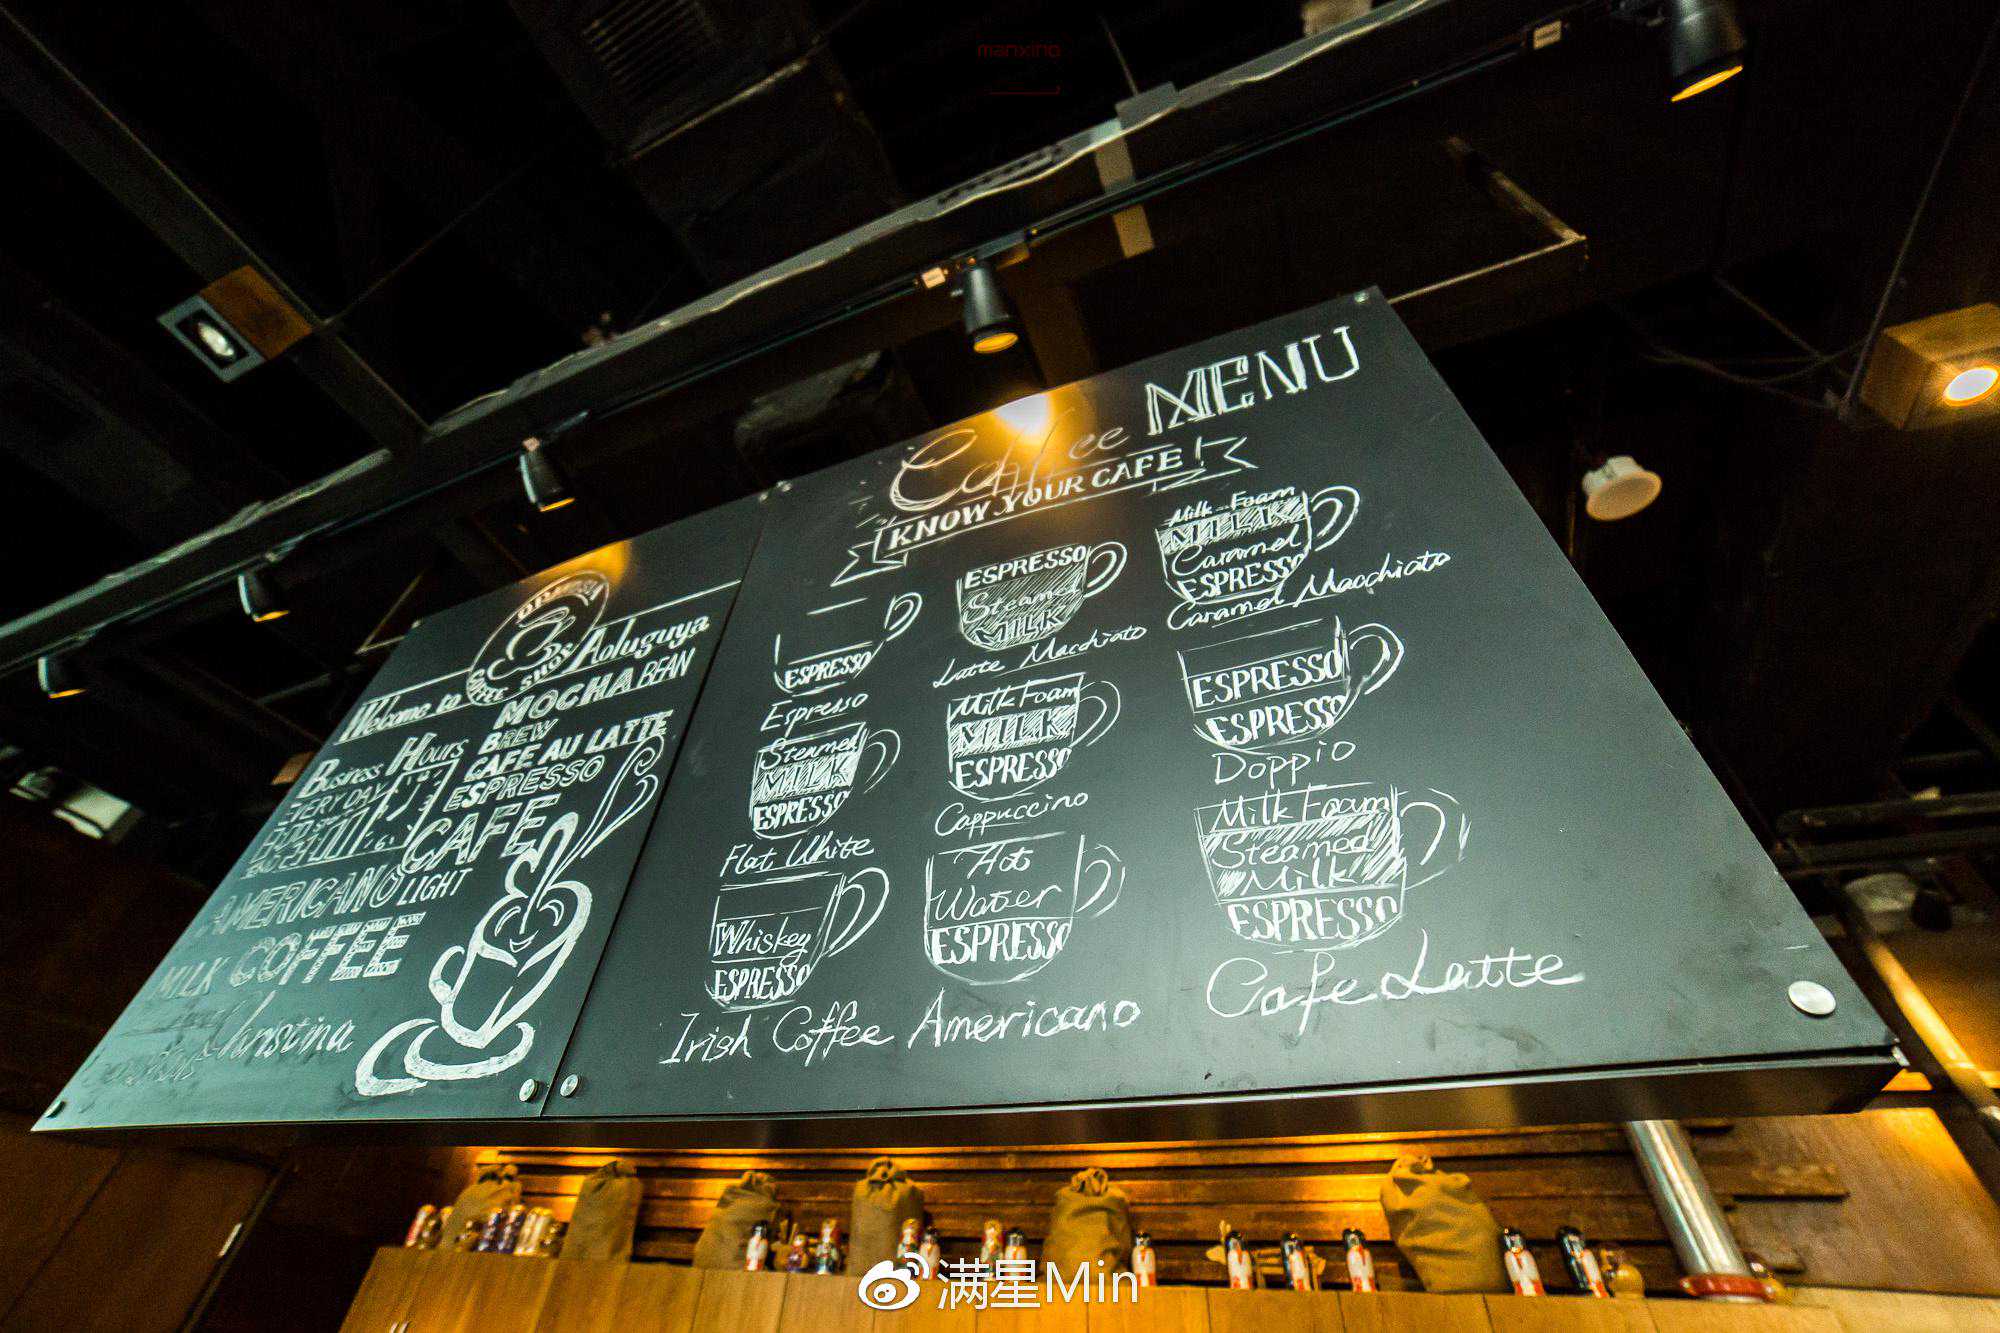 manxino
Welcome to Aoluguya
COFFEE SHOP
MOCHA BEAN
BREW
CAFE AU LATTE
ESPRESSO
CAFE
Business Hours
EVERY DAY
AMERICANO LIGHT
MILK COFFEE
Christina
Coffee MENU
KNOW YOUR CAFE
ESPRESSO
Espresso
ESPRESSO
Steamed
MILK
Latte Macchiato
Milk Foam
MILK
Caramel
ESPRESSO
Caramel Macchiato
Steamed
MILK
ESPRESSO
Flat White
Milk Foam
MILK
ESPRESSO
Cappuccino
ESPRESSO
ESPRESSO
Doppio
Whiskey
ESPRESSO
Irish Coffee
Hot
Water
ESPRESSO
Americano
Milk Foam
Steamed
Milk
ESPRESSO
Cafe Latte
满星Min